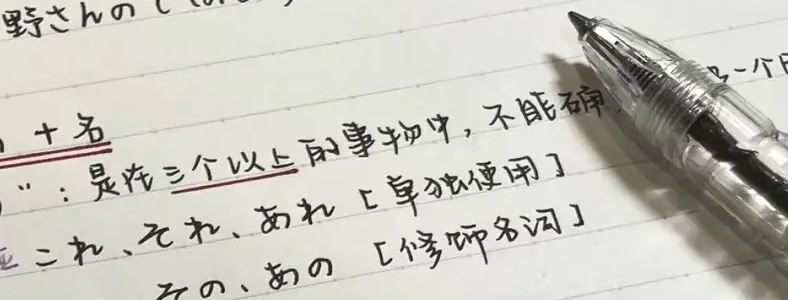 野さんの
＋名
"：是在三个以上的事物中，不能确 一个
これ、それ、あれ［单独使用］
その、あの［修饰名词］